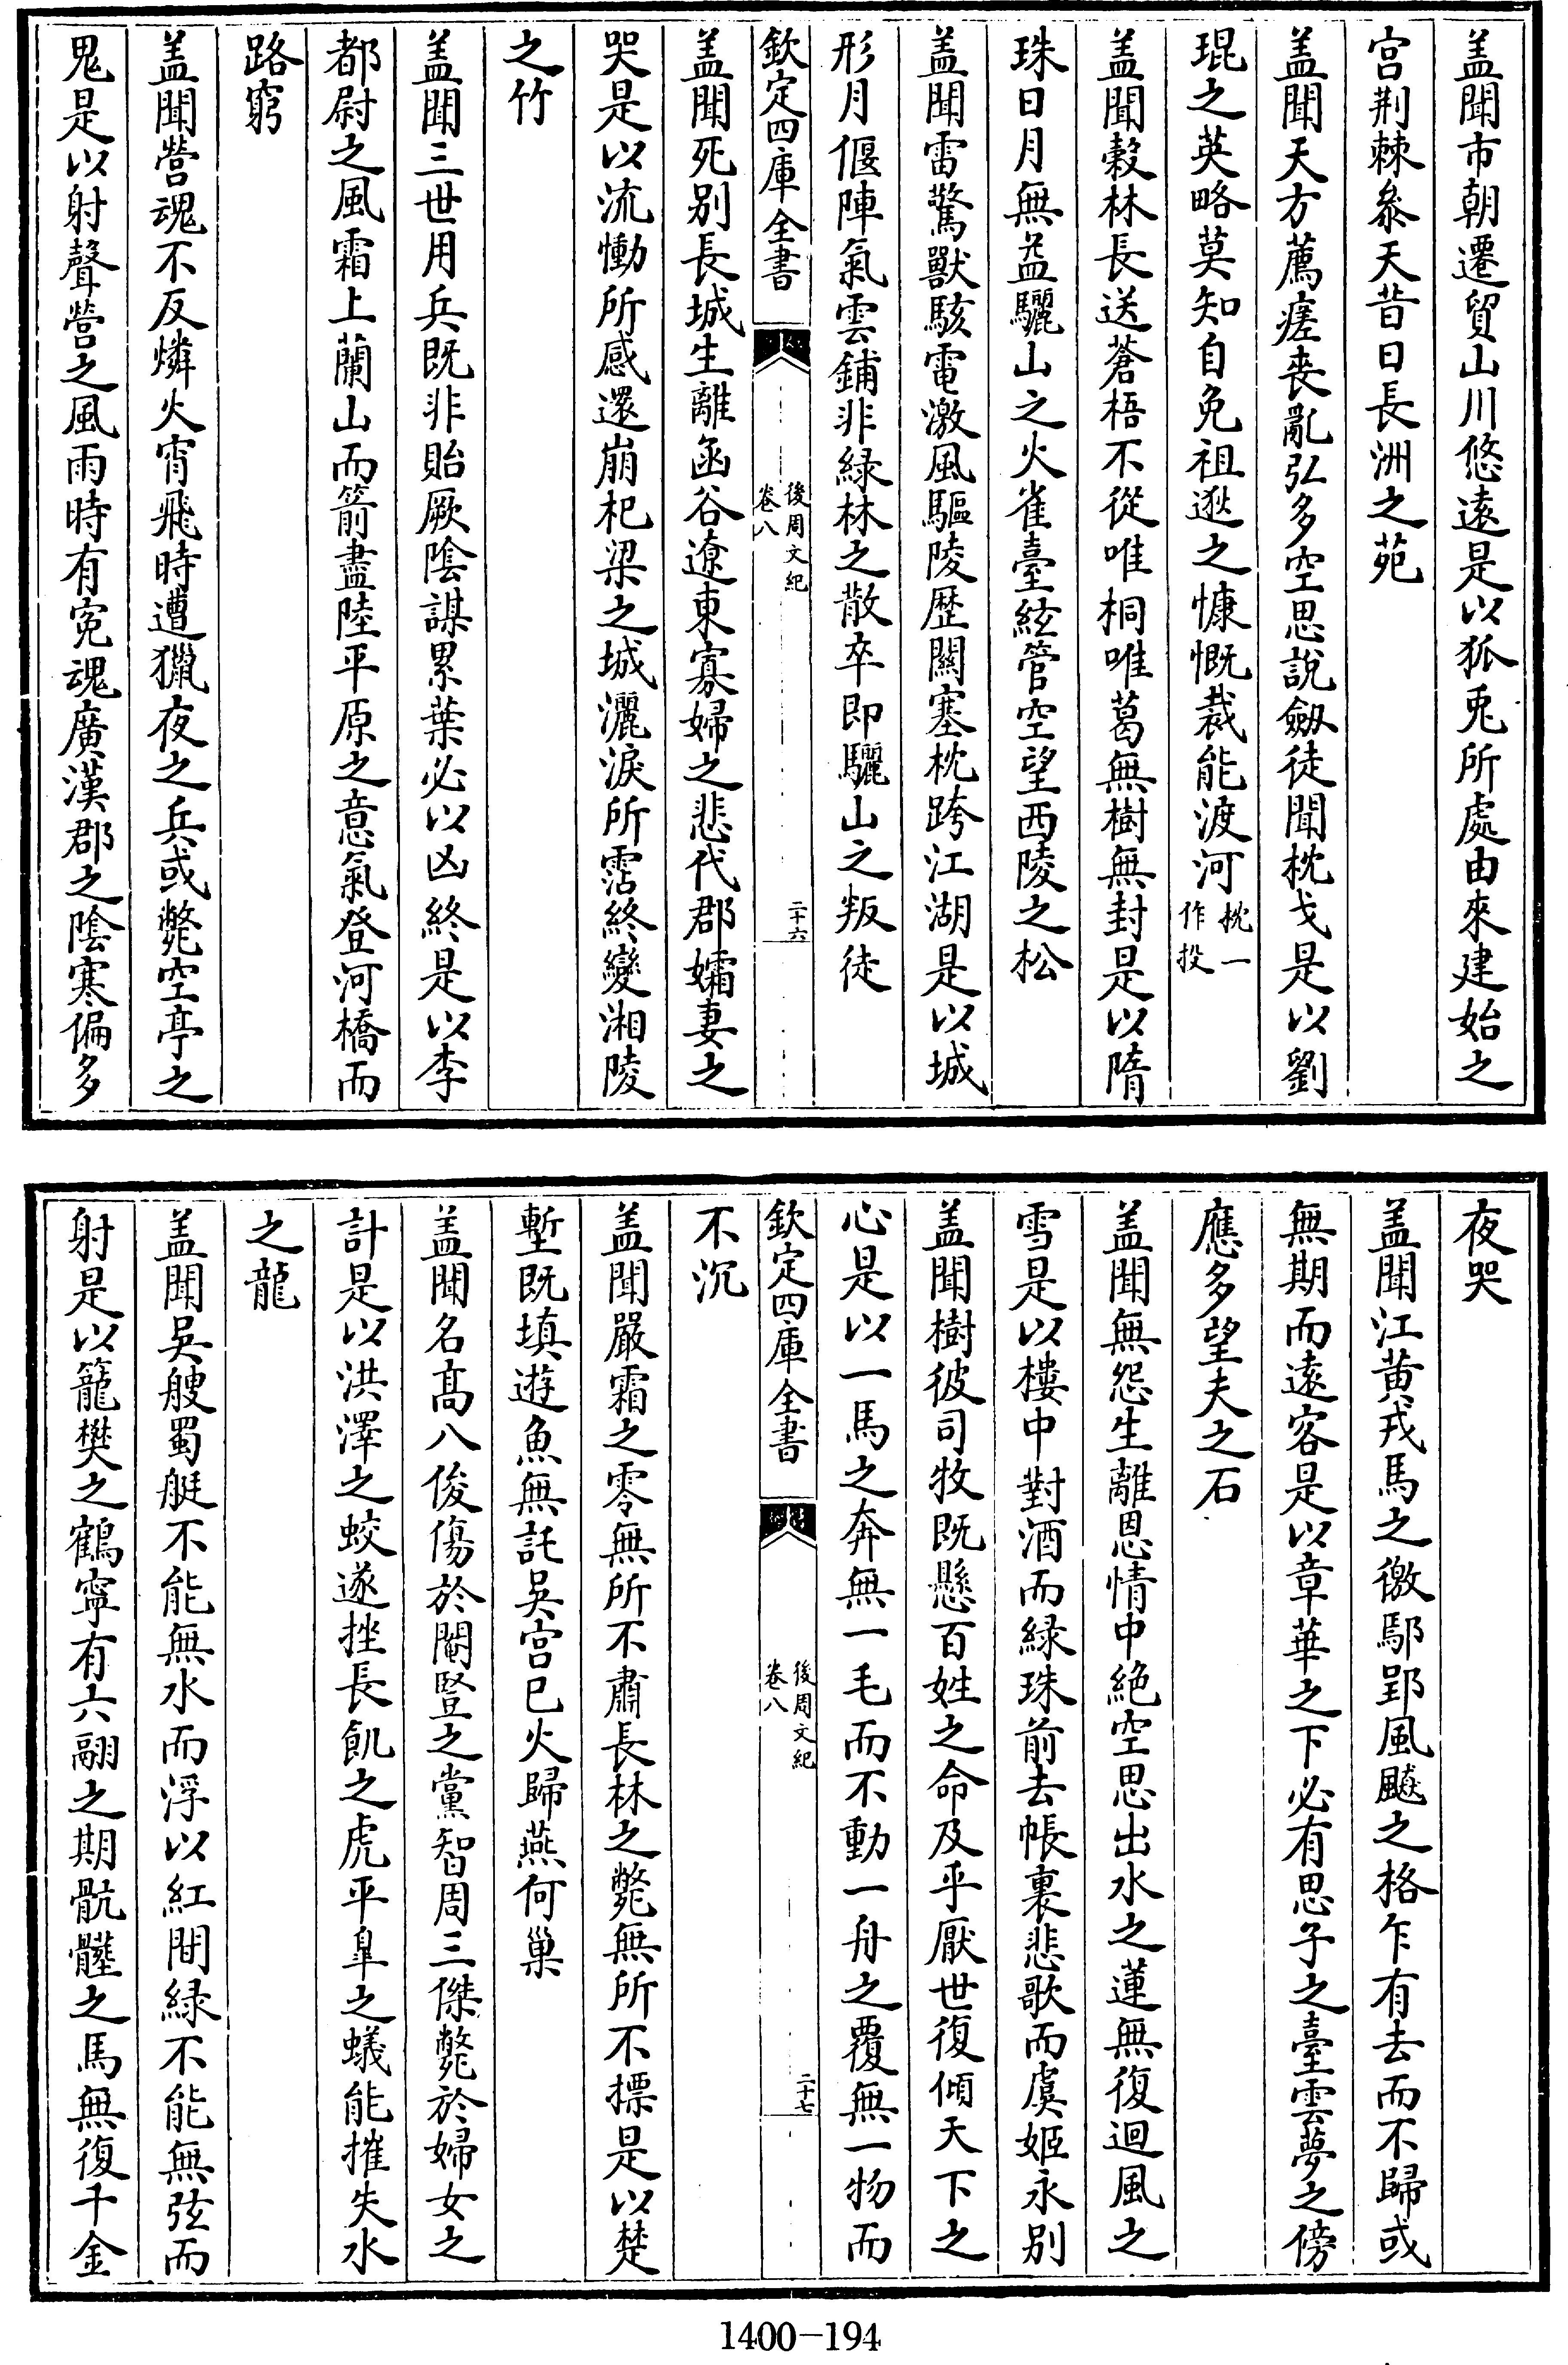 盖聞市朝遷貿山川悠遠是以狐兎所處由來建始之
宫荆棘叅天昔日長洲之苑
盖聞天方薦瘥喪亂弘多空思說劔徒聞枕戈是以劉
琨之英略莫知自免祖逖之慷慨裁能渡河枕一作投
盖聞穀林長送蒼梧不從唯桐唯葛無樹無封是以隋
珠日月無益驪山之火雀臺絃管空望西陵之松
盖聞雷驚獸駭電激風驅陵歴關塞枕跨江湖是以城
形月偃陣氣雲鋪非緑林之散卒即驪山之叛徒
欽定四庫全書
後周文紀
卷八
二十六
盖聞死别長城生離函谷遼東寡婦之悲代郡孀妻之
哭是以流慟所感還崩杞梁之城灑淚所霑終變湘陵
之竹
盖聞三世用兵既非貽厥陰謀累葉必以凶終是以李
都尉之風霜上蘭山而箭盡陸平原之意氣登河橋而
路窮
盖聞營魂不反燐火宵飛時遭獵夜之兵或斃空亭之
鬼是以射聲營之風雨時有寃魂廣漢郡之陰寒偏多
夜哭
盖聞江黄戎馬之徼鄢郢風飈之格乍有去而不歸或
無期而遠客是以章華之下必有思子之臺雲夢之傍
應多望夫之石
盖聞無怨生離恩情中絶空思出水之蓮無復迴風之
雪是以樓中對酒而緑珠前去帳裏悲歌而虞姬永别
盖聞樹彼司牧既懸百姓之命及乎厭世復傾天下之
心是以一馬之奔無一毛而不動一舟之覆無一物而
欽定四庫全書
後周文紀
卷八
二十七
不沉
盖聞嚴霜之零無所不肅長林之斃無所不摽是以楚
塹既填遊魚無託吳宫已火歸燕何巢
盖聞名髙八俊傷於閹豎之黨智周三傑斃於婦女之
計是以洪澤之蛟遂挫長飢之虎平臯之蟻能摧失水
之龍
盖聞吳艘蜀艇不能無水而浮以紅間緑不能無弦而
射是以籠樊之鶴寧有六翮之期骯髒之馬無復千金
1400—194